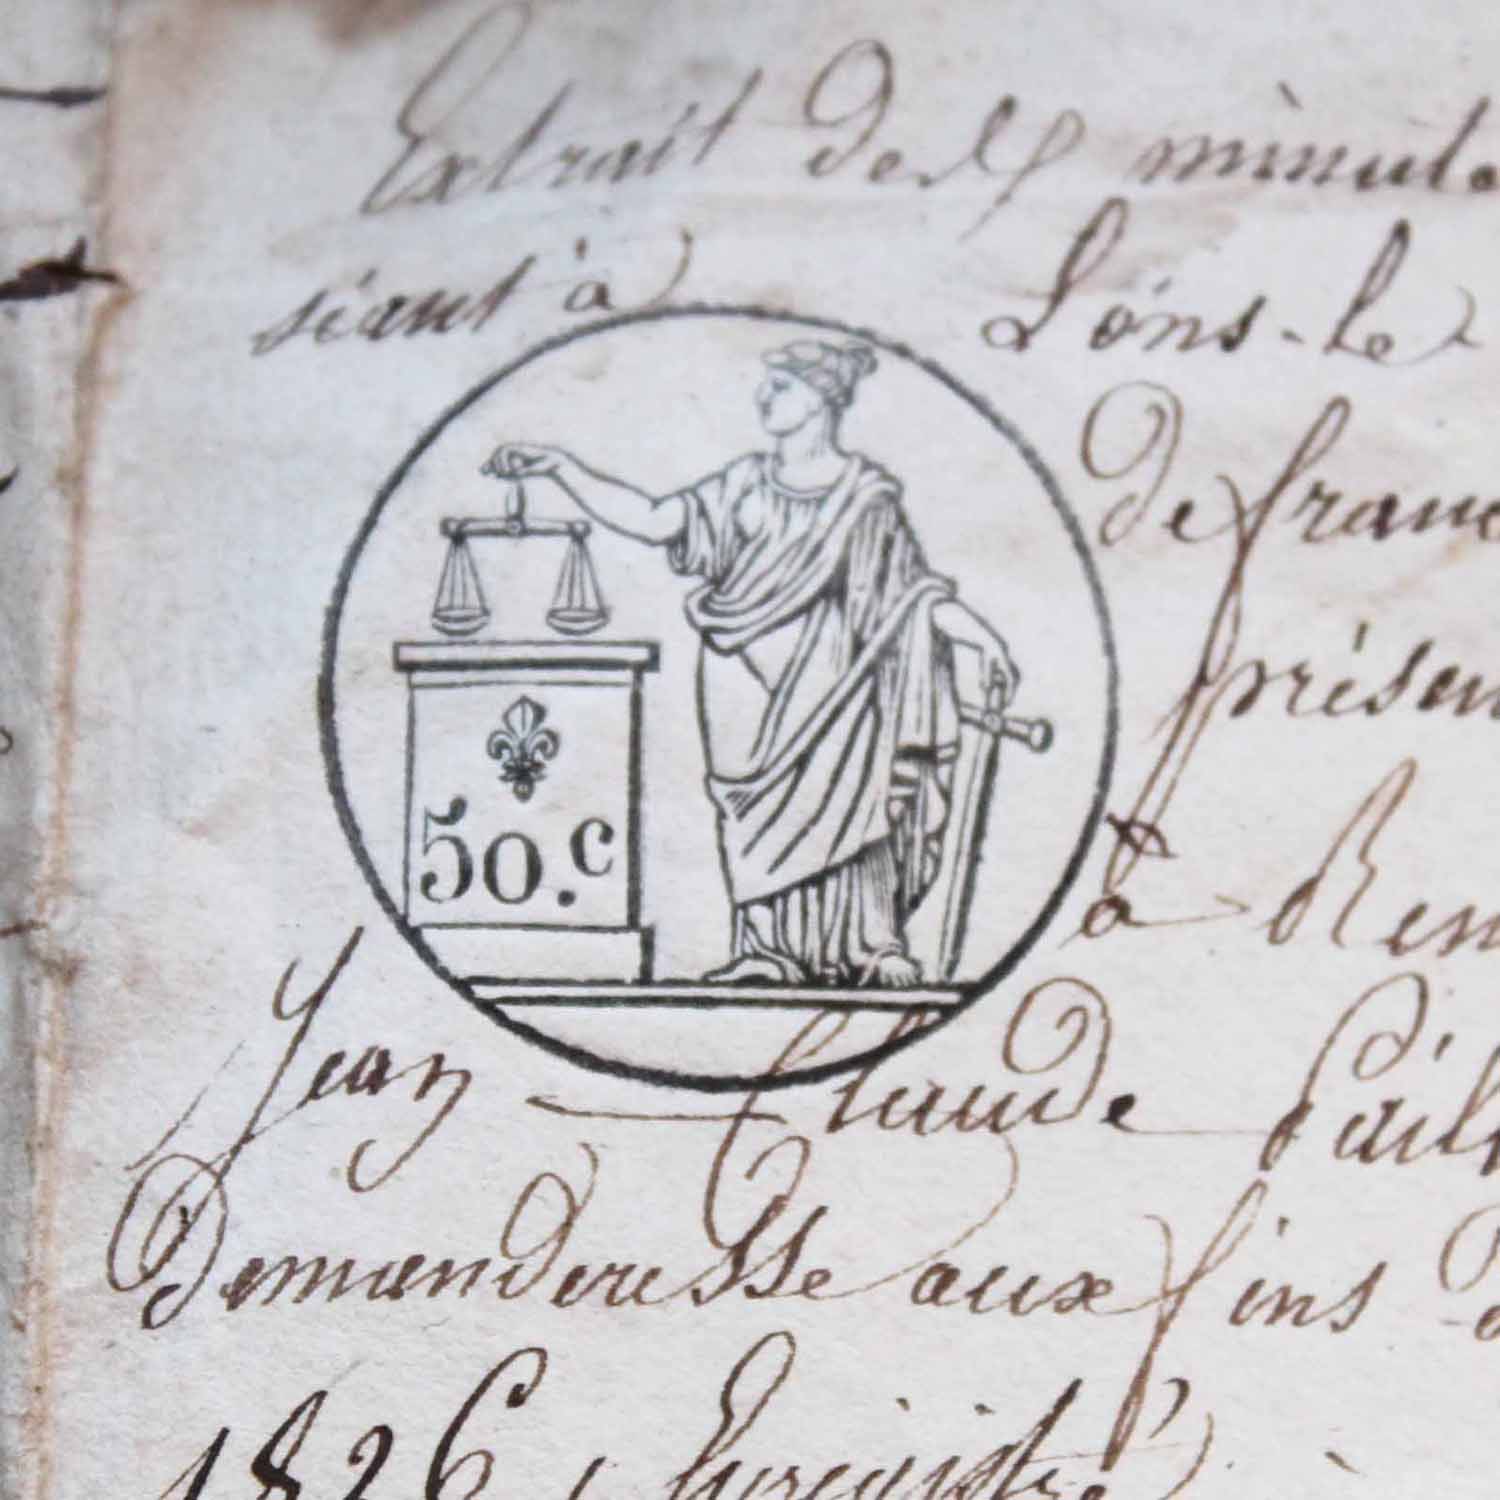 Extrait des minute
séant à Lons-le
de franc
présen
50.c
à Ren
Jean Claude Pail
Demanderesse aux fins
1826, Enregistré